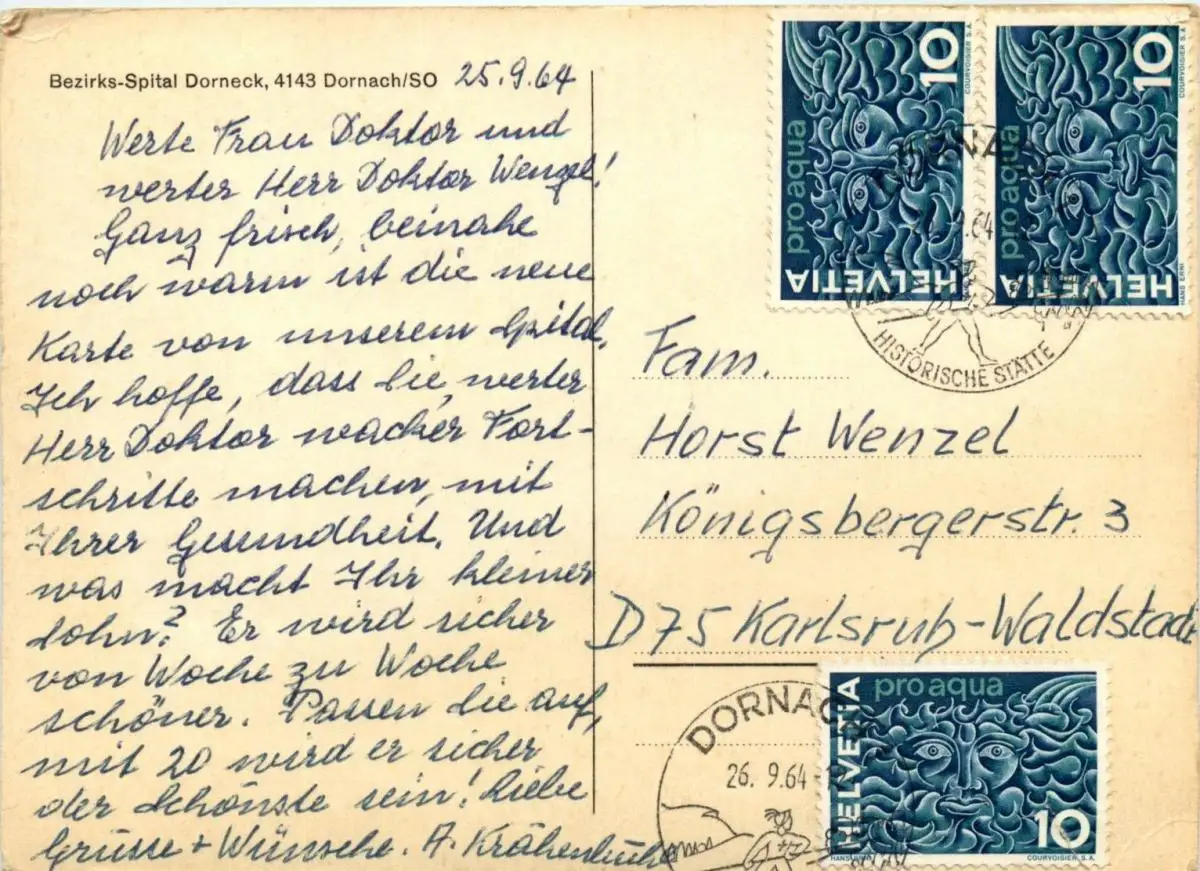 Bezirks-Spital Dorneck, 4143 Dornach/SO 25.9.64
Werte Frau Doktor und
werter Herr Doktor Wenzel!
Ganz frisch, beinahe
noch warm ist die neue
Karte von unserem Spital.
Ich hoffe, dass Sie, werter
Herr Doktor wacker Fort-
schritte machen, mit
Ihrer Gesundheit. Und
was macht Ihr kleiner
Sohn? Er wird sicher
von Woche zu Woche
schöner. Passen Sie auf,
mit 20 wird er sicher
der Schönste sein! Liebe
Grüsse + Wünsche. A. Krähenbühl
pro aqua
HELVETIA
10
COURVOISIER S.A.
pro aqua
HELVETIA
10
HANS ERNI
COURVOISIER S.A.
DORNACH
26.9.64
HISTORISCHE STÄTTE
Fam.
Horst Wenzel
Königsbergerstr. 3
D75 Karlsruh-Waldstadt
DORNACH
26.9.64-1
pro aqua
HELVETIA
10
HANS ERNI
COURVOISIER S.A.